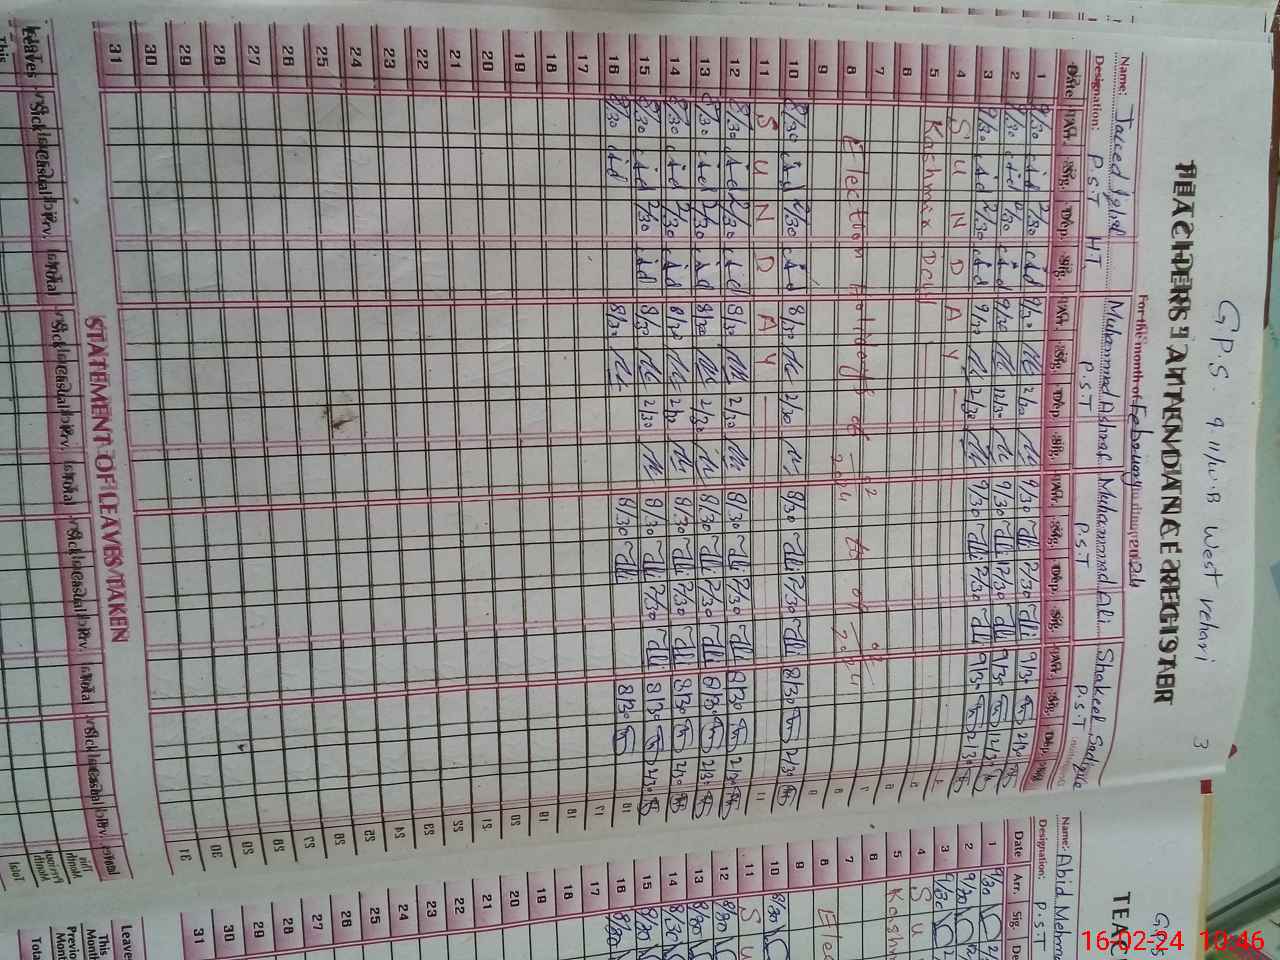 G.P.S. 9-11/W.B West vehari 3
TEACHERS' ATTENDANCE REGISTER
For the month of February 2024
Name: Javed Iqbal Muhammad Ashraf Muhammad Ali Shakeel Sadique
Designation: P.S.T H.T P.S.T P.S.T P.S.T
Date Arr. Sig. Dep. Sig. Arr. Sig. Dep. Sig. Arr. Sig. Dep. Sig. Arr. Sig. Dep. Sig.
1 9/30 2/30 9/30 2/30 9/30 2/30 9/30 2/30
2 9/30 12/30 9/30 12/30 9/30 12/30 9/30 12/30
3 9/30 2/30 9/30 2/30 9/30 2/30 9/30 2/30
4 S U N D A Y
5 Kashmir Day
6
7
8 Election holidays
9
10 8/30 2/30 8/30 2/30 8/30 2/30 8/30 2/30
11 S U N D A Y
12 8/30 2/30 8/30 2/30 8/30 2/30 8/30 2/30
13 8/30 2/30 8/30 2/30 8/30 2/30 8/30 2/30
14 8/30 2/30 8/30 2/30 8/30 2/30 8/30 2/30
15 8/30 2/30 8/30 2/30 8/30 2/30 8/30 2/30
16 8/30 8/30 8/30 8/30
17
18
19
20
21
22
23
24
25
26
27
28
29
30
31
STATEMENT OF LEAVES TAKEN
Leaves Sick Casual Prv. Total Sick Casual Prv. Total Sick Casual Prv. Total Sick Casual Prv.
This
G.P.S
TEAC
Name: Abid Mehm
Designation: P.S.T
Date Arr. Sig. De
1 9/30
2 9/30
3 9/30
4 S U
5 Kashm
6
7
8 Elec
9
10 8/30
11 S U
12 8/30
13 8/30
14 8/30
15 8/30
16 8/30
17
18
19
20
21
22
23
24
25
26
27
28
29
30
31
Leaves
This Month
Previous Month
Total
16-02-24 10:46